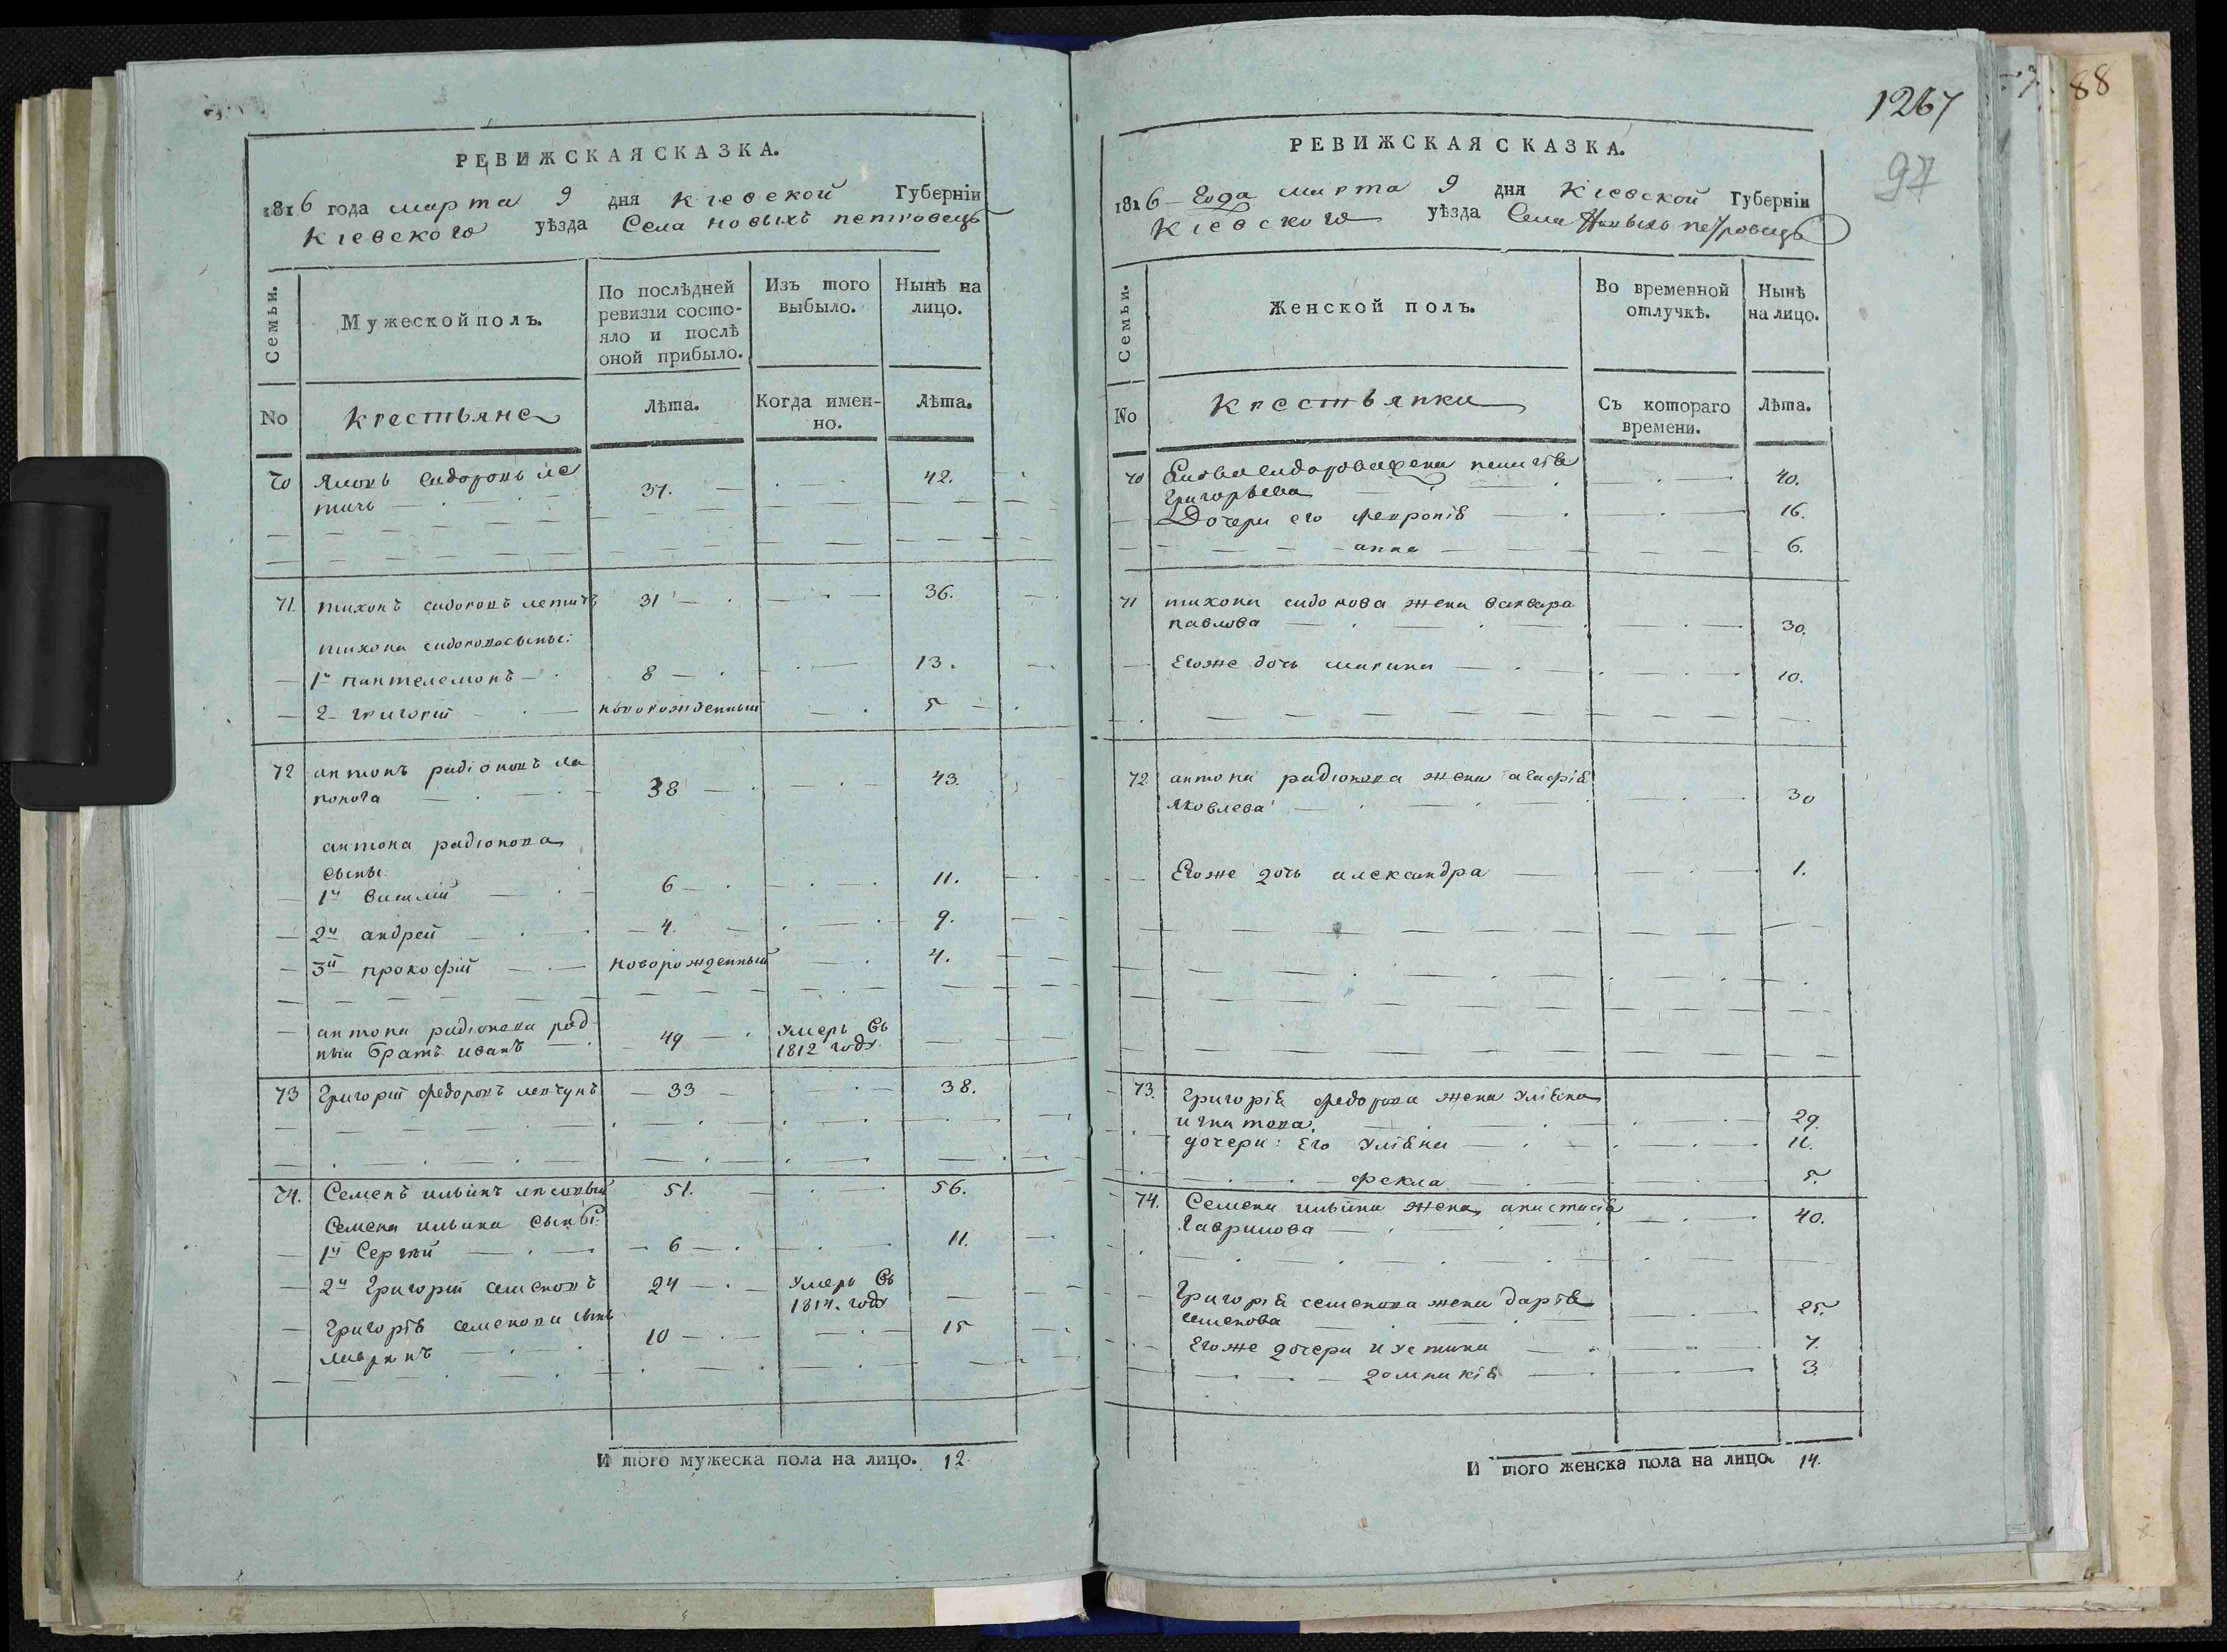 РЕВИЖСКАЯ СКАЗКА.
1816 года марта 9 дня Кіевской Губерніи
Кіевского уѣзда Села новыхъ петровецъ
Семьи.
Мужеской полъ.
По послѣдней ревизіи состо-
яло и послѣ
оной прибыло.
Изъ того
выбыло.
Нынѣ на
лицо.
No
крестьяне
Лѣта.
Когда имен-
но.
Лѣта.
70 Сидоровъ 37. 42.
71. тихонъ сидоровъ летичъ 31 36.
тихона сидорова сыны:
1й пантелемонъ 8 13.
2 григорій новорожденный 5
72 антонъ радіоновъ ла
38 43.
антона радіонова
сыны:
1й василій 6 11.
2й андрей 4. 9.
3й прокофій новорожденный 4.
антона радіонова род
ный братъ иванъ 49 умеръ въ
1812 году
73 Григорій федоровъ левчунъ 33 38.
74. Семенъ ильинъ 51. 56.
Семена ильина сыны:
1й Сергѣй 6 11.
2й Григорій семеновъ 24 умеръ въ
1814. году
Григорія семенова сынъ
10 15
И того мужеска пола на лицо. 12.
1267
97
88
РЕВИЖСКАЯ СКАЗКА.
1816 года марта 9 дня Кіевской Губерніи
Кіевского уѣзда Села Новыхъ петровецъ
Семьи.
Женской полъ.
Во временной
отлучкѣ.
Нынѣ
на лицо.
No
крестьянки
Съ котораго
времени.
Лѣта.
70 сидорова жена
Григорьева 40.
Дочери его февронія 16.
анна 6.
71 тихона сидорова жена варвара
павлова 30.
Его же дочь марина 10.
72 антона радіонова жена агафія
яковлева 30
Его же дочь александра 1.
73. Григорія федорова жена уліяна
игнатова. 29.
дочери: Его уліяна 11.
фекла 5.
74. Семена ильина жена анастасія
гаврилова 40.
Григорія семенова жена дарія
семенова 25.
Его же дочери иустина 7.
домникія 3.
И того женска пола на лицо. 14.